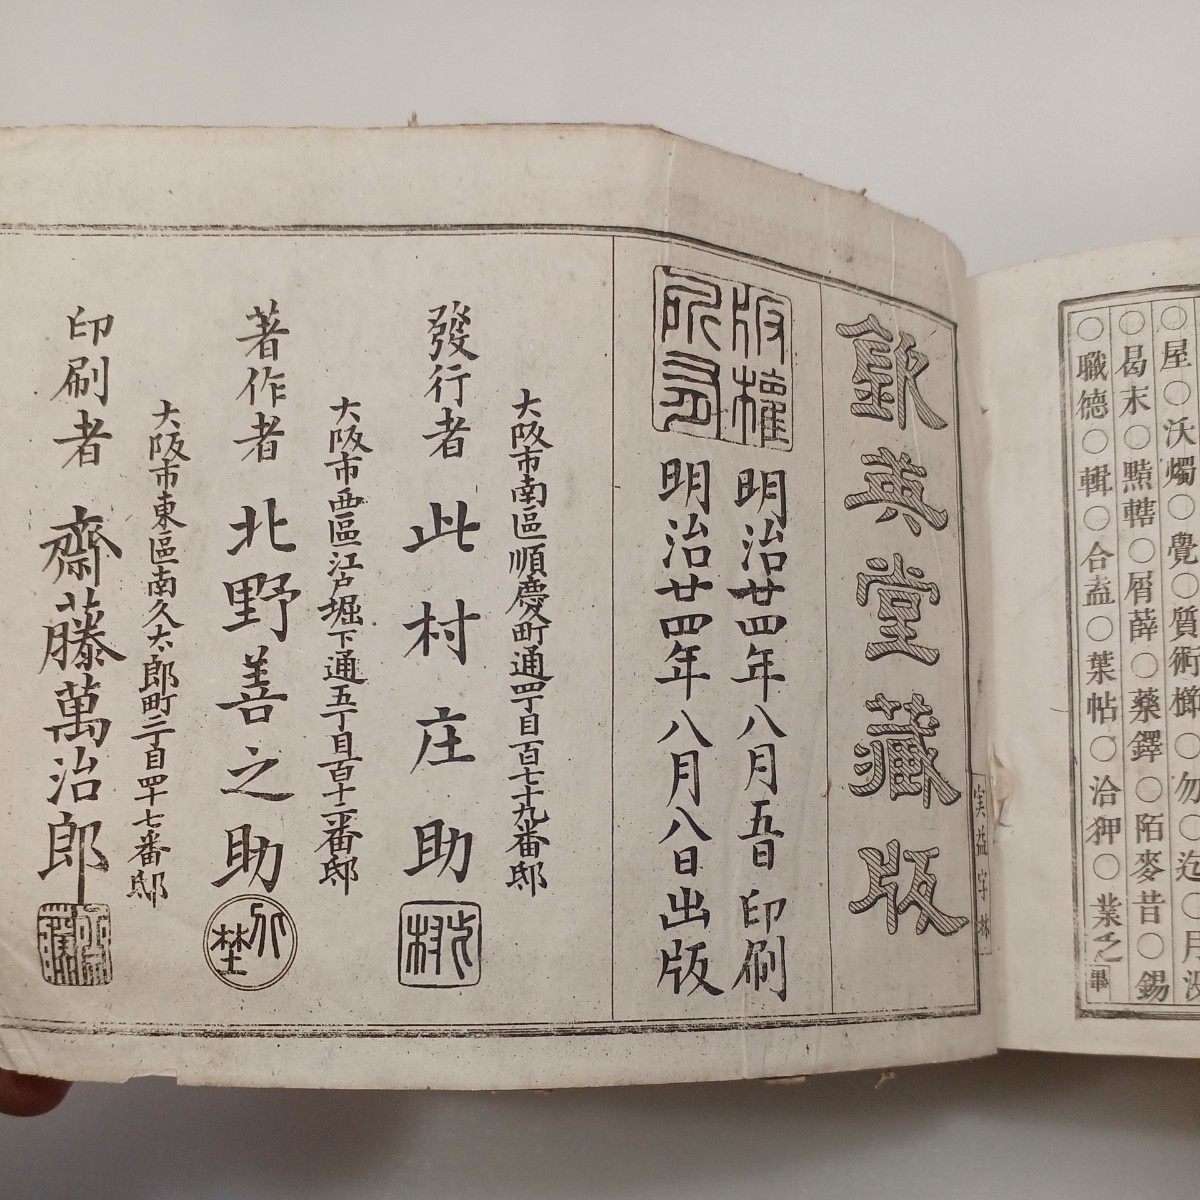 ○屋○沃燭○覺○質術櫛○勿○迄○月沒
○曷末○黠轄○屑薛○藥鐸○陌麥昔○錫
○職德○輯○合盍○葉帖○洽狎○業乏畢
実益字林
欽英堂藏版
版權
所有
明治廿四年八月五日印刷
明治廿四年八月八日出版
大阪市南區順慶町通四丁目百七十九番邸
發行者 此村庄助
大阪市西區江戸堀下通五丁目百十二番邸
著作者 北野善之助
大阪市東區南久太郎町二丁目四十七番邸
印刷者 齋藤萬治郎